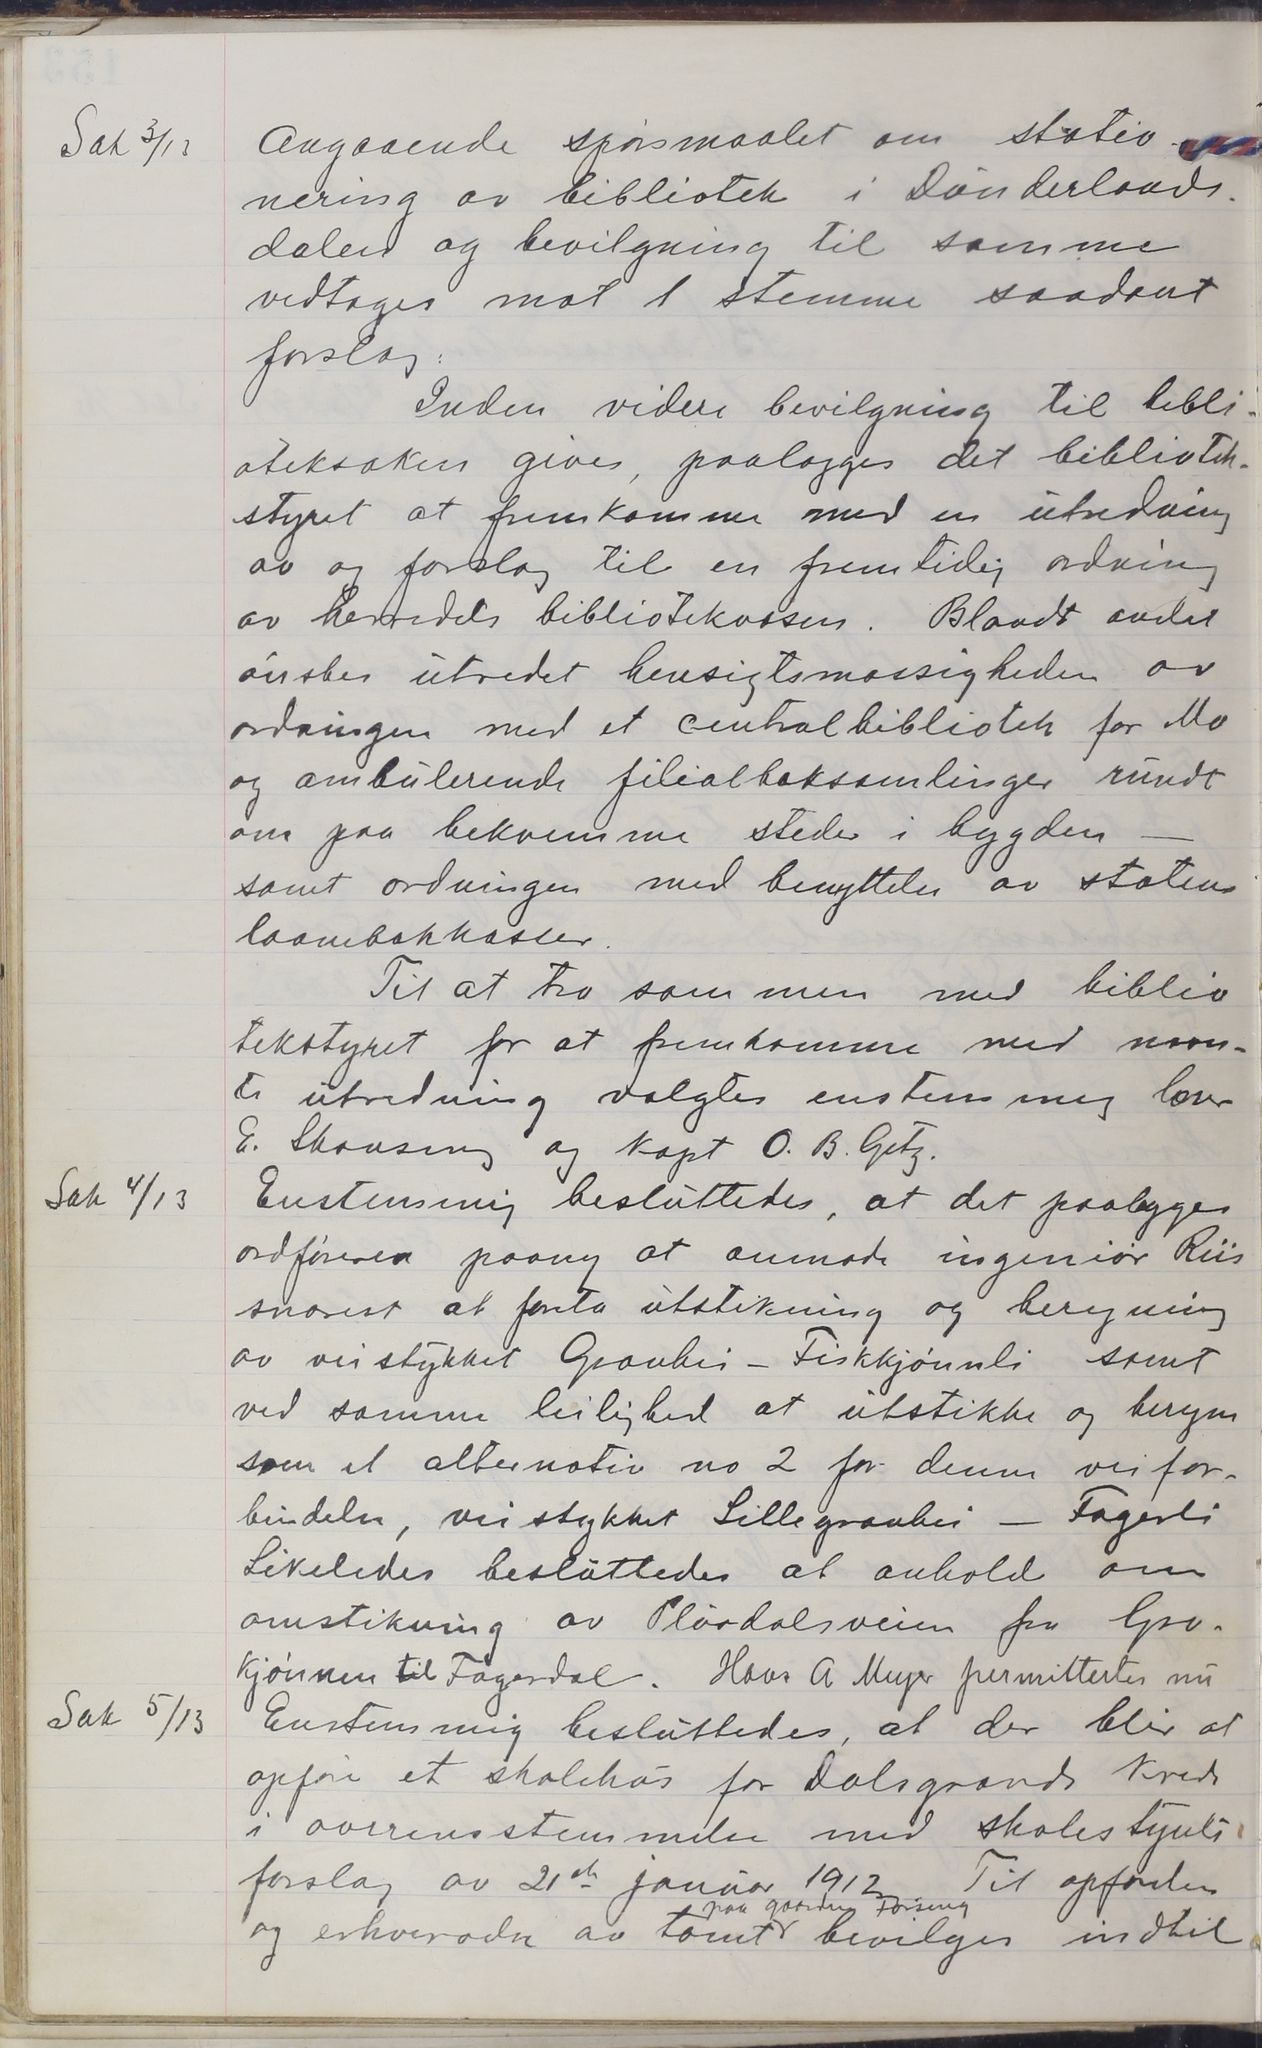 Sak 3/13 Angaaende spørsmaalet om statio-
nering av bibliotek i Dunderlands-
dalen og bevilgning til samme
vedtages mot 1 stemme saadant
forslag:
Inden videre bevilgning til bibli-
oteksaken gives, paalægges det bibliotek-
styret at fremkomme med en utredning
av og forslag til en fremtidig ordning
av herredets biblioteksvæsen. Blandt andet
ønskes utredet hensigtsmæssigheden av
ordningen med et centralbibliotek for Mo
og ambulerende filialboksamlinger rundt
om paa bekvemme steder i bygden —
samt ordningen med benyttelse av statens
laanebokkasser.
Til at tra sammen med biblio
tekstyret for at fremkomme med nævn-
te utredning valgtes enstemmig lærer
E. Skansing og kapt O. B. Getz.
Sak 4/13 Enstemmig besluttedes, at det paalægges
ordføreren paany at anmode ingeniør Riis
snarest at foreta utstikning og beregning
av veistykket Graubei - Fiskkjønnli samt
ved samme leilighed at utstikke og beregne
som et alternativ no 2 for denne veifor-
bindelse, veistykket Lillegraubei — Fagerli
Likeledes besluttedes at anholde om
omstikning av Plurdalsveien fra Gra-
kjønnen til Fagerdal. Hans A Meyer permittertes nu
Sak 5/13 Enstemmig besluttedes, at der blir at
opføre et skolehus for Dalsgrands kreds
i overensstemmelse med skolestyrets
forslag av 21de januar 1912. Til opførelse
paa gaarden Forsing
og erhvervelse av tomt bevilges indtil